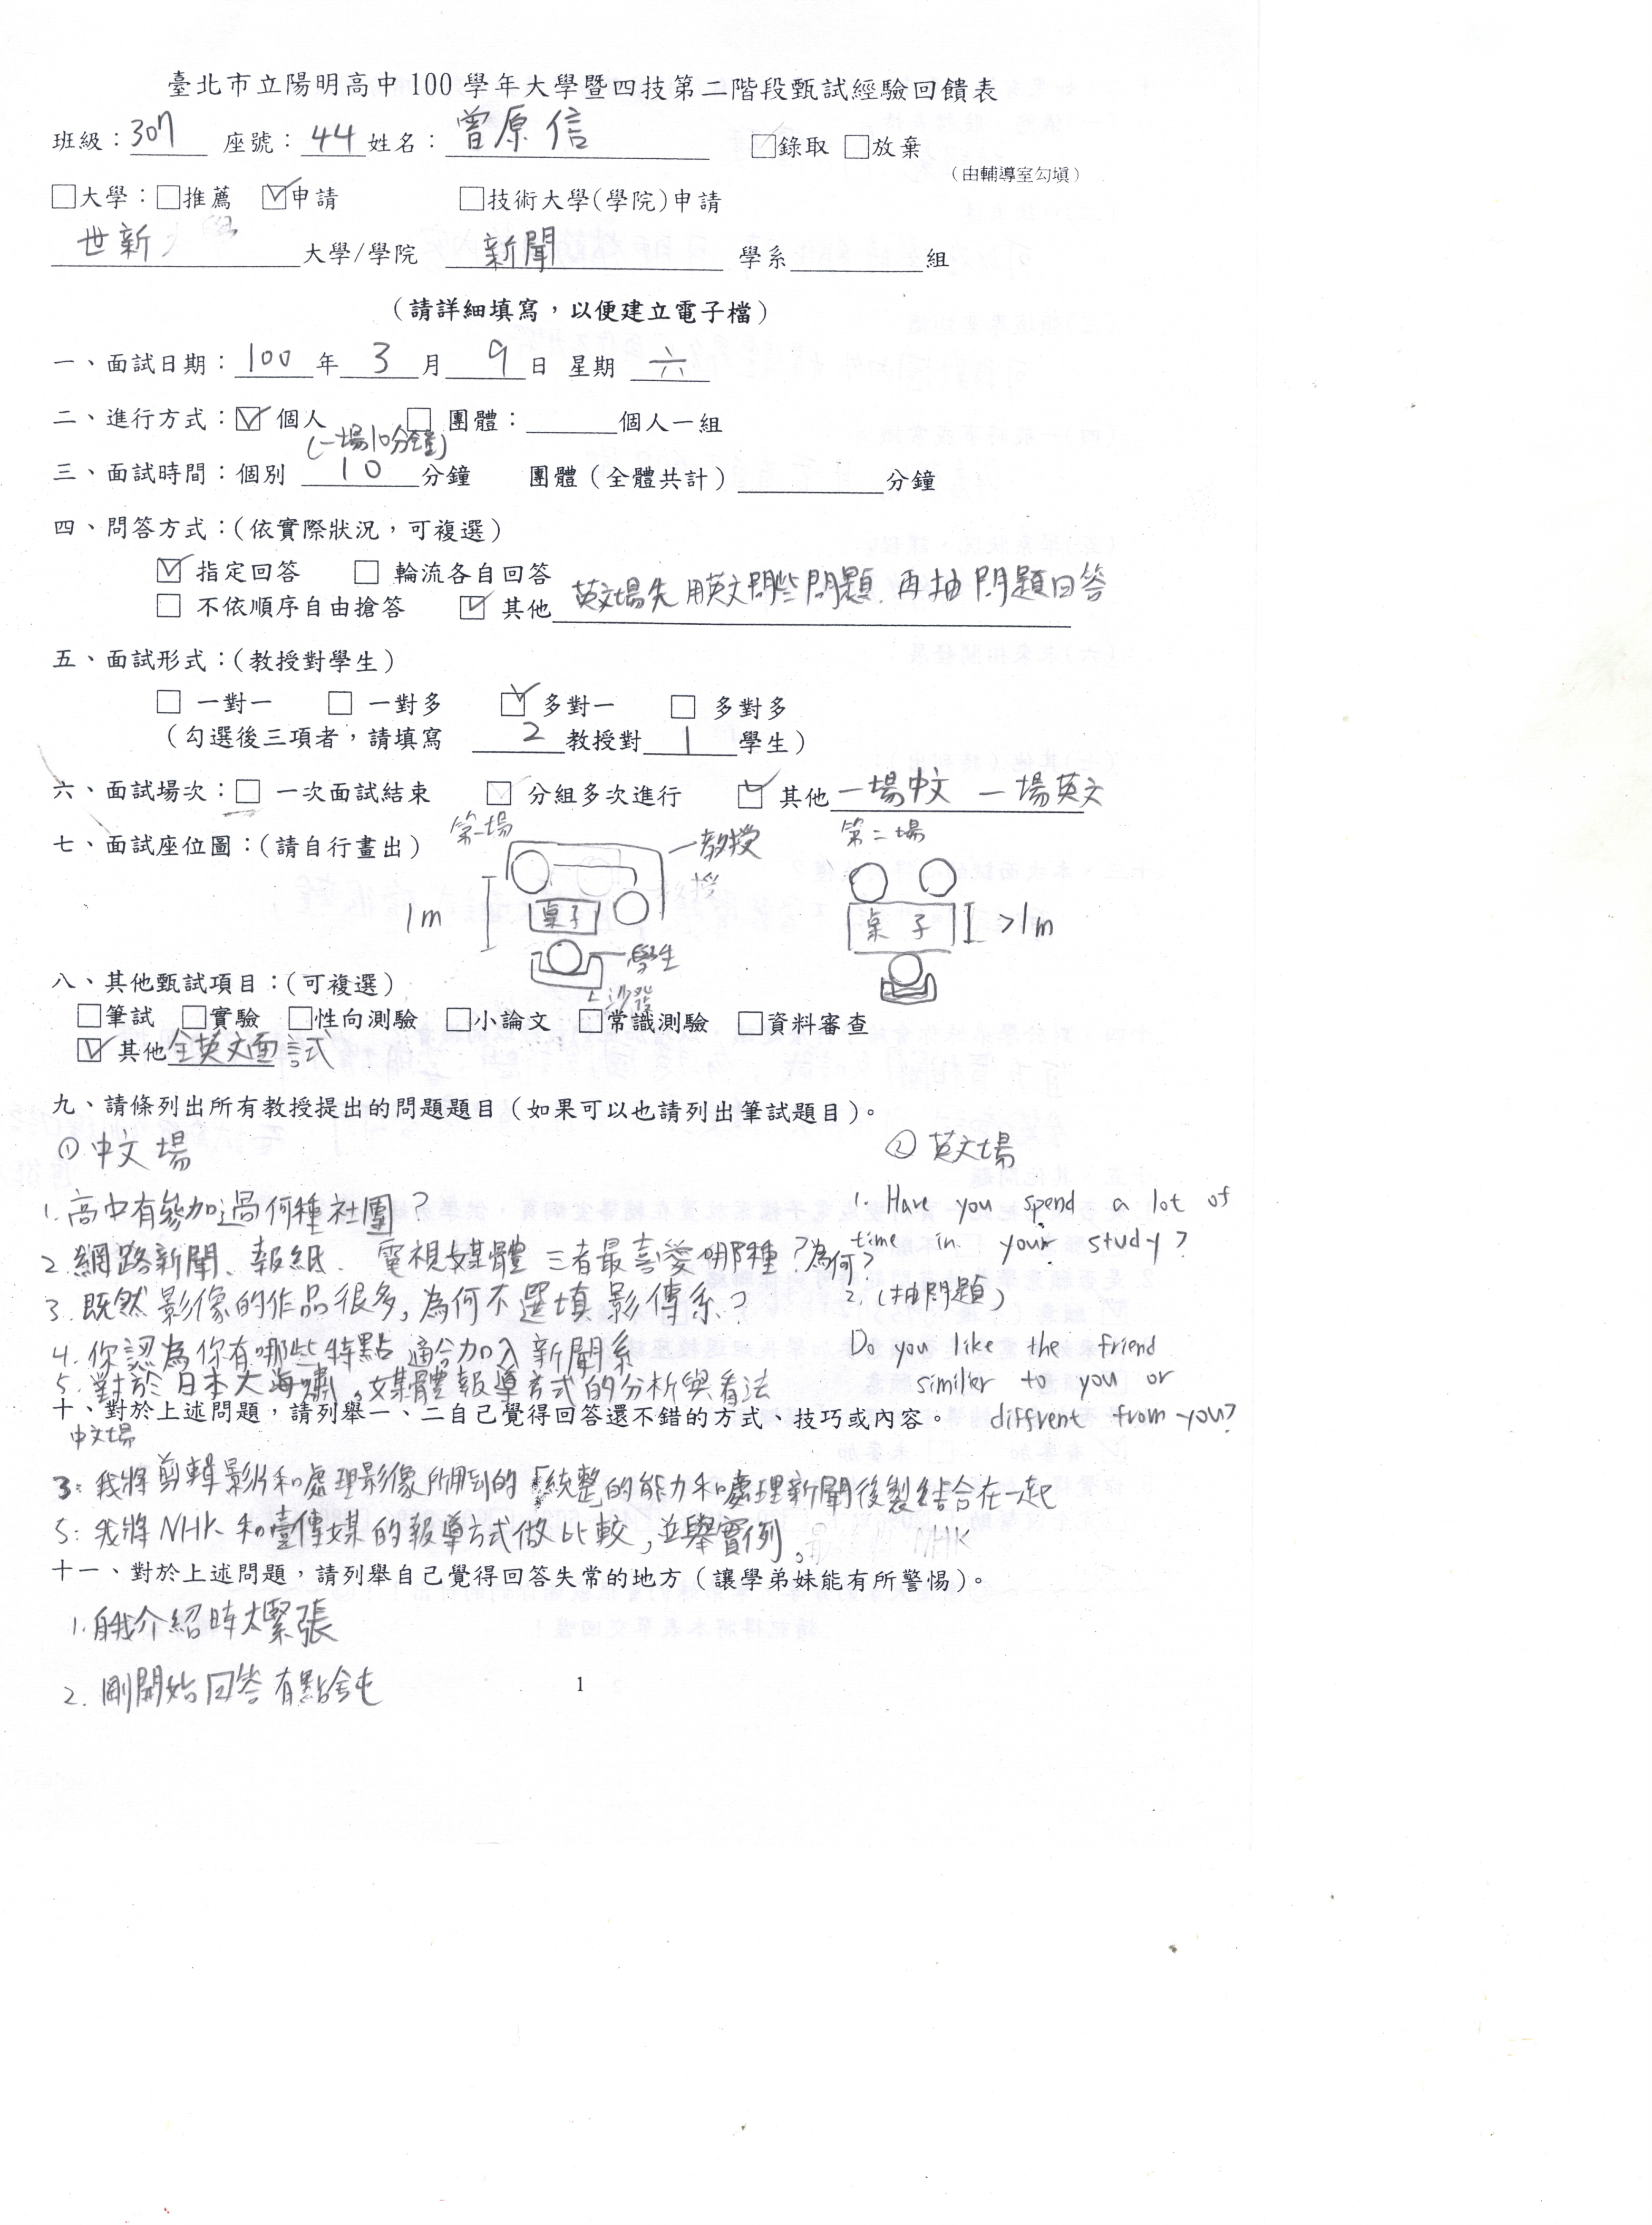 臺北市立陽明高中 100 學年大學暨四技第二階段甄試經驗回饋表
班級：307 座號：44 姓名：曾原信 ☑錄取 □放棄
（由輔導室勾填）
□大學：□推薦 ☑申請 □技術大學(學院)申請
世新 大學/學院 新聞 學系 組
（請詳細填寫，以便建立電子檔）
一、面試日期：100 年 3 月 9 日 星期 六
二、進行方式：☑ 個人 □ 團體： 個人一組
(一場10分鐘)
三、面試時間：個別 10 分鐘 團體（全體共計） 分鐘
四、問答方式：(依實際狀況，可複選)
☑ 指定回答 □ 輪流各自回答
□ 不依順序自由搶答 ☑ 其他 英文場先用英文問些問題，再抽問題回答
五、面試形式：(教授對學生)
□ 一對一 □ 一對多 ☑ 多對一 □ 多對多
（勾選後三項者，請填寫 2 教授對 1 學生）
六、面試場次：□ 一次面試結束 □ 分組多次進行 ☑ 其他 一場中文 一場英文
七、面試座位圖：(請自行畫出)
第一場
教授
1m
桌子
學生
沙發
第二場
桌子
>1m
八、其他甄試項目：(可複選)
□筆試 □實驗 □性向測驗 □小論文 □常識測驗 □資料審查
☑ 其他 全英文面試
九、請條列出所有教授提出的問題題目（如果可以也請列出筆試題目）。
① 中文場
1. 高中有參加過何種社團？
2. 網路新聞、報紙、電視媒體 三者最喜愛哪種？為何？
3. 既然影像的作品很多，為何不選填影傳系？
4. 你認為你有哪些特點適合加入新聞系
5. 對於日本大海嘯，媒體報導方式的分析與看法
② 英文場
1. Have you spend a lot of
time in your study?
2. (抽問題)
Do you like the friend
similer to you or
diffrent from you?
十、對於上述問題，請列舉一、二自己覺得回答還不錯的方式、技巧或內容。
中文場
3: 我將剪輯影片和處理影像所用到的「統整」的能力和處理新聞後製結合在一起
5: 我將NHK和臺傳媒的報導方式做比較，並舉實例。
十一、對於上述問題，請列舉自己覺得回答失常的地方（讓學弟妹能有所警惕）。
1. 自我介紹時太緊張
2. 剛開始回答有點鈍
1